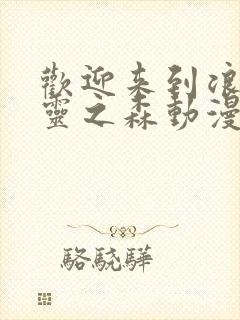 歡迎来到浪
靈之森動漫
駱驍驊